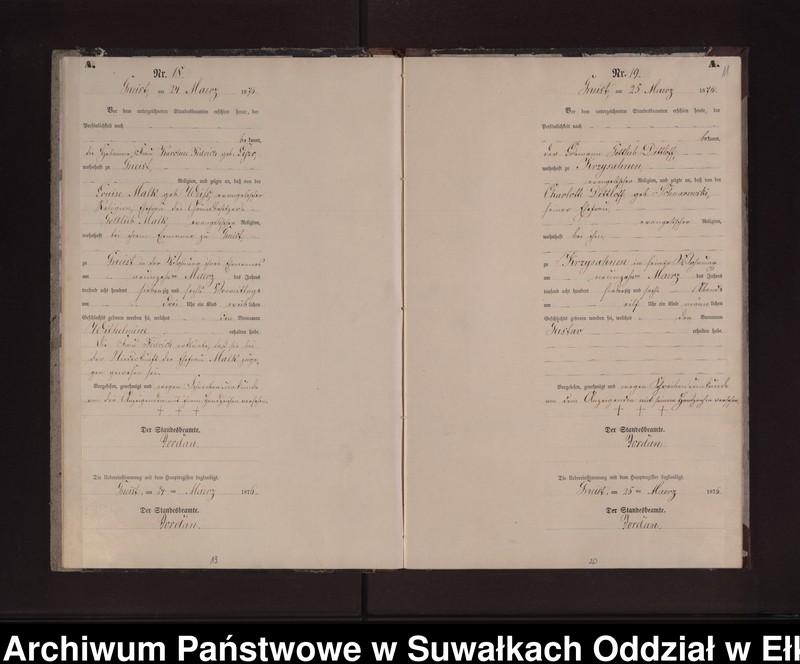 A.
Nr. 18.
Gneist, am 24 Maerz 1876.
Vor dem unterzeichneten Standesbeamten erschien heute, der
Persönlichkeit nach
bekannt,
die Hebamme, Frau Karoline geb.
wohnhaft zu Gneist
Religion, und zeigte an, daß von der
Louise Malk geb. evangelischer
Religion, Ehefrau des
Gottlieb Malk, evangelischer Religion,
wohnhaft bei ihrem Ehemanne zu Gneist
zu Gneist in der Wohnung ihres Ehemannes
am neunzehn Maerz des Jahres
tausend acht hundert siebenzig und sechs Vormittags
um drei Uhr ein Kind weiblichen
Geschlechts geboren worden sei, welches den Vornamen
Wilhelmine erhalten habe.
Die Frau erklärte, daß sie bei
der Niederkunft der Ehefrau Malk zuge-
gen gewesen sei.
Vorgelesen, genehmigt und wegen Schreibensunkunde
von der Anzeigenden mit ihrem Handzeichen versehen.
+ + +
Der Standesbeamte.
Jordan.
Die Uebereinstimmung mit dem Hauptregister beglaubigt.
Gneist, am 24 ten Maerz 1876.
Der Standesbeamte.
Jordan.
A.
11
Nr. 19.
Gneist, am 25 Maerz 1876.
Vor dem unterzeichneten Standesbeamten erschien heute, der
Persönlichkeit nach
bekannt,
der Gottlieb Dittloff,
wohnhaft zu Krzysahnen
evangelischer Religion, und zeigte an, daß von der
Charlotte Dittloff geb.
seiner Ehefrau,
evangelischer Religion,
wohnhaft bei ihm
zu Krzysahnen in seiner Wohnung
am neunzehn Maerz des Jahres
tausend acht hundert siebenzig und sechs Abends
um elf Uhr ein Kind männlichen
Geschlechts geboren worden sei, welches den Vornamen
Gustav erhalten habe.
Vorgelesen, genehmigt und wegen Schreibensunkunde
von dem Anzeigenden mit seinem Handzeichen versehen.
+ + +
Der Standesbeamte.
Jordan.
Die Uebereinstimmung mit dem Hauptregister beglaubigt.
Gneist, am 25 ten Maerz 1876.
Der Standesbeamte.
Jordan.
20
Archiwum Państwowe w Suwałkach Oddział w Ełk